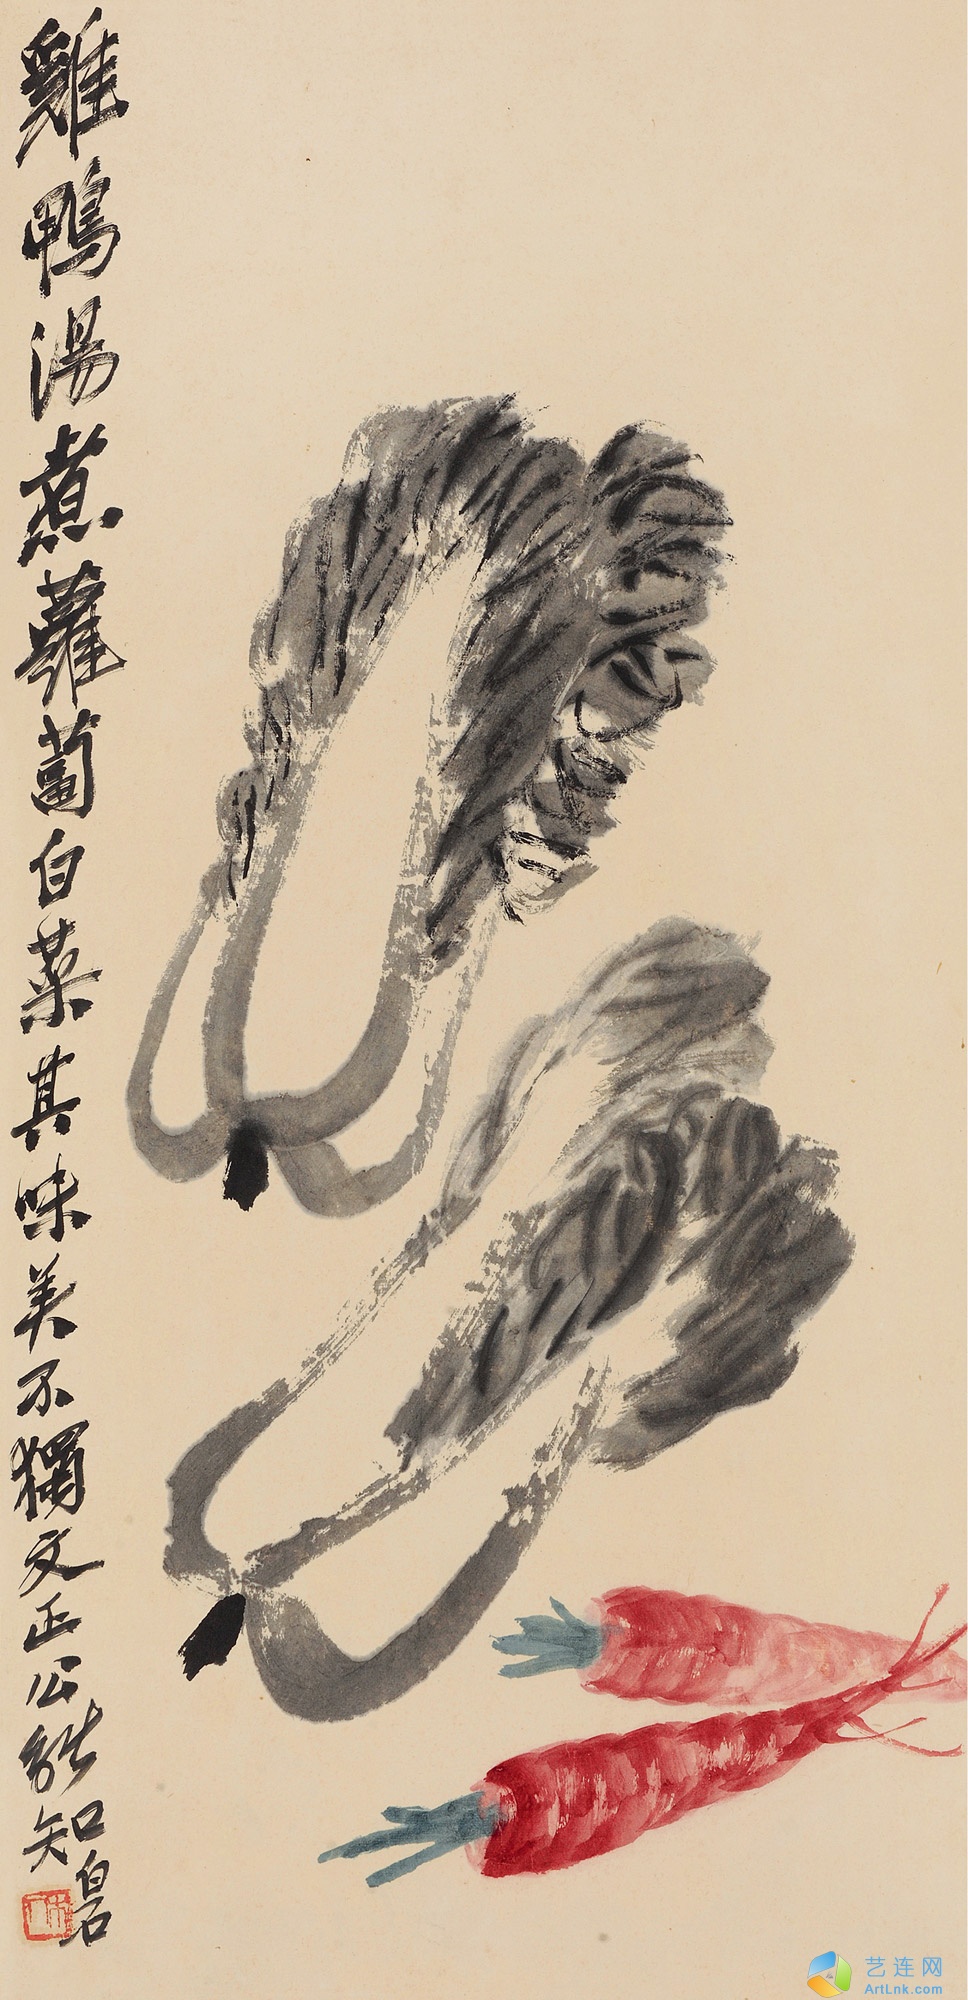 雞鴨湯煮蘿蔔白菜其味美不獨文正公能知
白石
木人
艺连网
ArtLnk.com